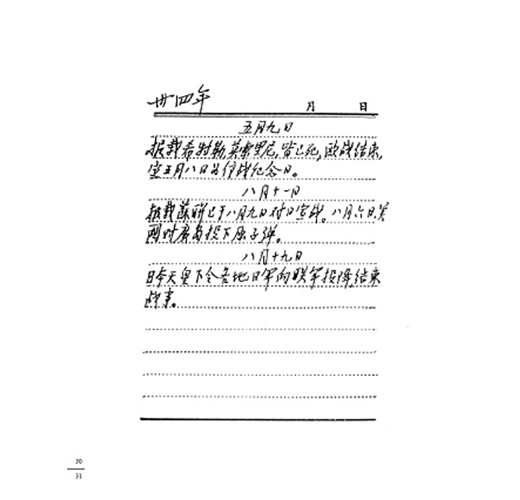 卅四年 月 日
五月九日
报载希特勒、莫索里尼,皆已死,欧战结束,
定五月八日为停战纪念日。
八月十一日
报载苏联已于八月九日对日宣战。八月六日美
国对广岛投下原子弹。
八月十九日
日本天皇下令各地日军向联军投降,结束
战事。
30
31